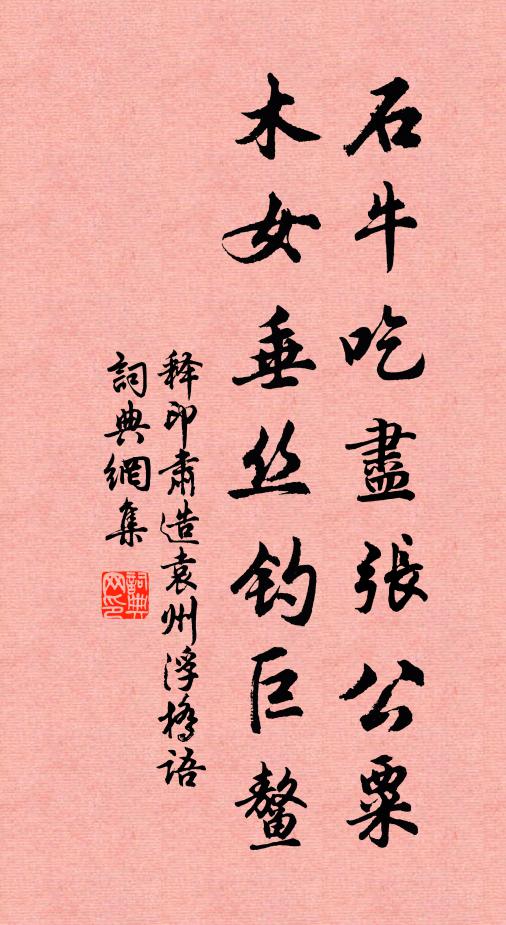 石牛吃盡張公粟
木女垂丝钓巨鳌
释印肃造袁州浮橋语
詞典網集
詞典网印